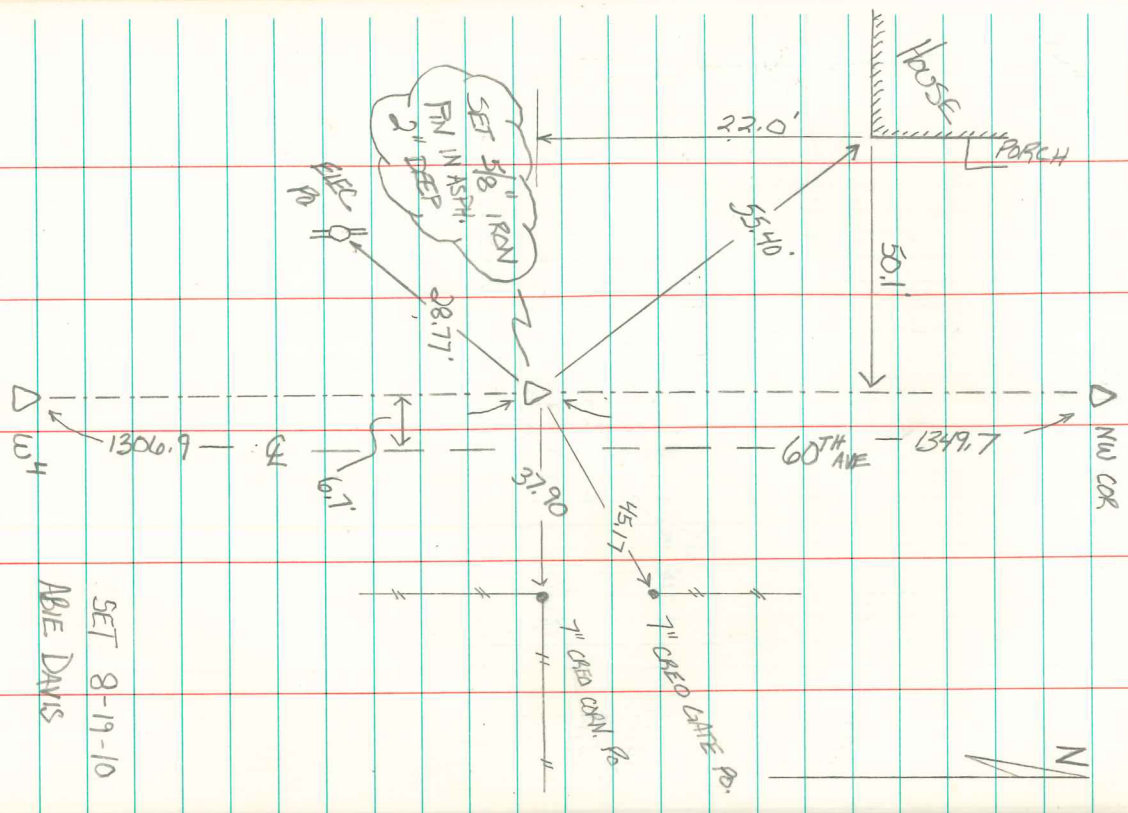 HOUSE
PORCH
22.0'
50.1'
55.40'
SET 5/8" IRON
PIN IN ASPH.
2" DEEP
ELEC
PO
28.77'
NW COR
1349.7
60TH AVE
℄
1306.9
W4
6.7'
37.90
45.17
7" CREO GATE PO.
7" CREO CORN. PO
N
SET 8-19-10
ABIE DAVIS